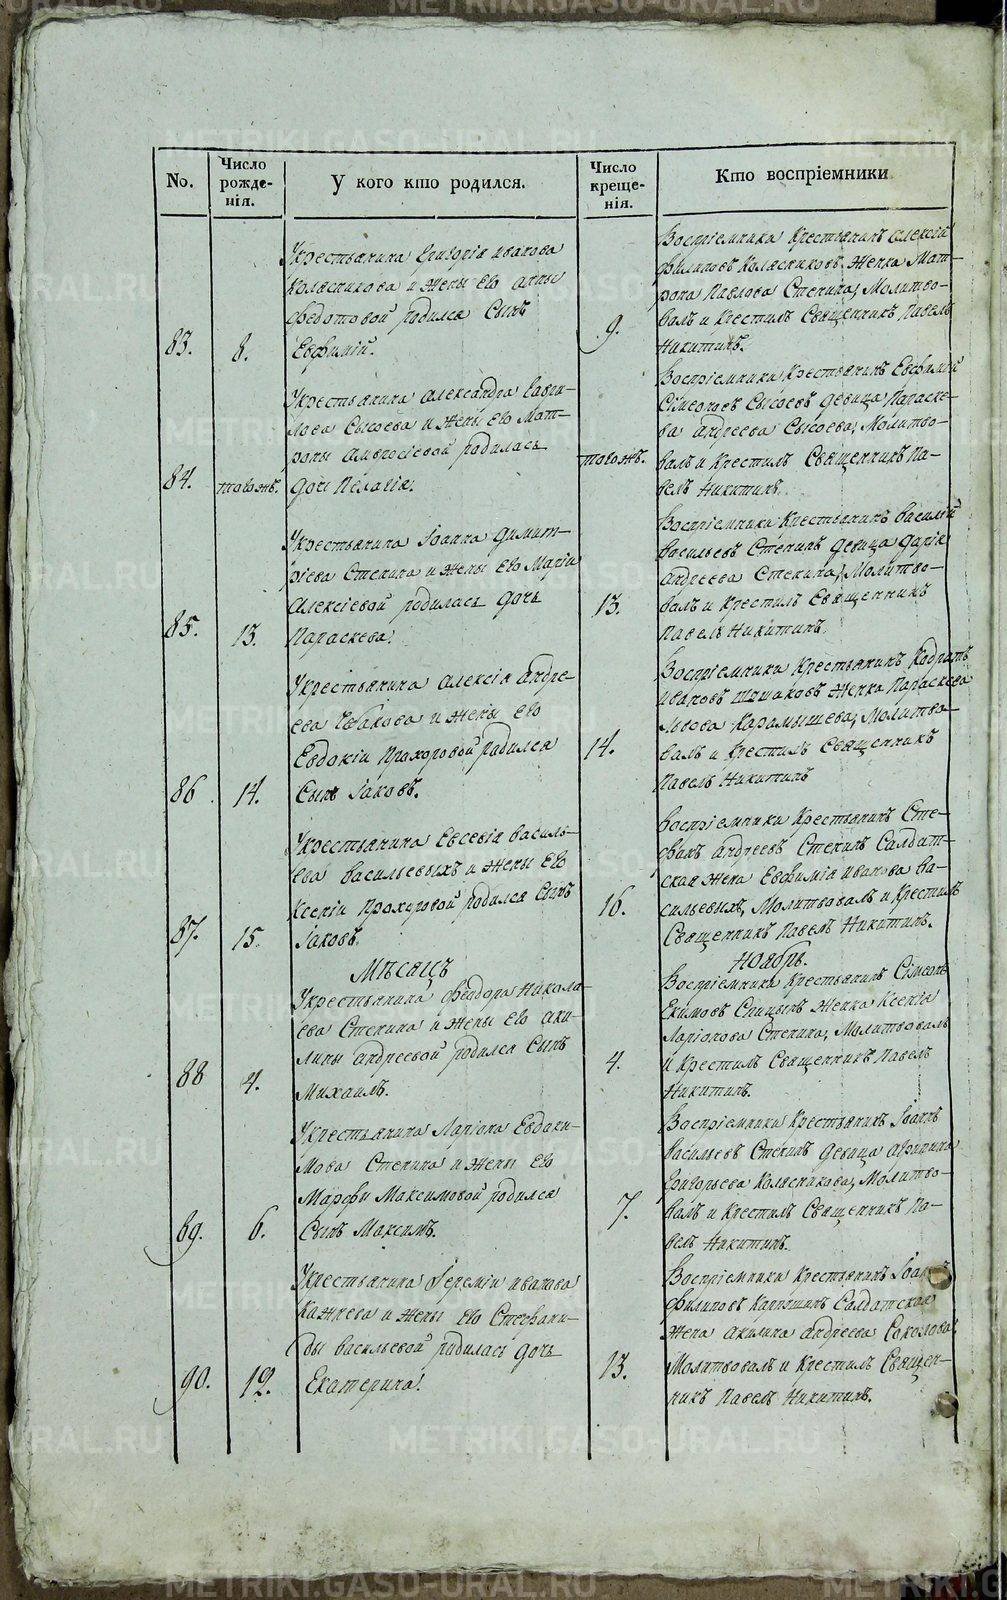 No.
Число рожде-нія.
У кого кто родился.
Число креще-нія.
Кто воспріемники
83.
8.
Укрестьянина Григорія иванова
Колясникова и жены его анны
федотовой родился Сынъ
Евфимій.
9.
Воспріемники Крестьянинъ алексій
филиповъ Колясниковъ женка Мат-
рона Павлова Степина, Молитво-
валъ и Крестилъ Священникъ Павелъ
Никитинъ.
84.
тогожъ.
Укрестьянина александра Гаври-
лова Сысоева и жены его Мат-
роны амвросіевой родилась
дочь Пелагія.
тогожъ.
Воспріемники Крестьянинъ Евфимій
Сімеоновъ Сысоевъ девица Параске-
ва андреева Сысоева, Молитво-
валъ и Крестилъ Священникъ Па-
велъ Никитинъ.
85.
13.
Укрестьянина Іоанна димит-
ріева Степина и жены его Маріи
алексіевой родилась дочь
Параскева.
13.
Воспріемники Крестьянинъ василій
васильевъ Степинъ девица дарія
андреева Степина, Молитво-
валъ и Крестилъ Священникъ
Павелъ Никитинъ.
86.
14.
Укрестьянина алексія андре-
ева и жены его
Евдокіи Прохоровой родился
Сынъ Іаковъ.
14.
Воспріемники Крестьянинъ Кодратъ
ивановъ Шишаковъ женка Параскева
Львова Карамышева, Молитво-
валъ и Крестилъ Священникъ
Павелъ Никитинъ
87.
15.
Укрестьянина Евсевія василь-
ева васильевыхъ и жены его
Ксеніи Прохоровой родился Сынъ
Іаковъ.
16.
воспріемники Крестьянинъ Сте-
фанъ андреевъ Степинъ Салдат-
ская жена Евфимія иванова ва-
сильевыхъ, Молитвовалъ и Крестилъ
Священникъ Павелъ Никитинъ.
Мѣсяцъ
Ноябрь.
88
4.
Укрестьянина феодора Никола-
ева Степина и жены его аки-
лины андреевой родился Сынъ
Михаилъ.
4.
Воспріемники Крестьянинъ Сімеонъ
Екимовъ Спицынъ женка Ксенія
Ларіонова Степина, Молитвовалъ
и Крестилъ Священникъ Павелъ
Никитинъ.
89.
6.
Укрестьянина Ларіона Евдоки-
мова Степина и жены его
Марфы Максимовой родился
Сынъ Максимъ.
7.
Воспріемники Крестьянинъ Іоаннъ
васильевъ Степинъ девица
Григорьева Колясникова, Молитво-
валъ и Крестилъ Священникъ Па-
велъ Никитинъ.
90.
12.
Укрестьянина Іереміи иванова
и жены его Стефани-
ды васильевой родилась дочь
Екатерина.
13.
Воспріемники Крестьянинъ Іоаннъ
филиповъ Салдатская
жена акилина андреева Соколова,
Молитвовалъ и Крестилъ Священ-
никъ Павелъ Никитинъ.
METRIKI.GASO-URAL.RU